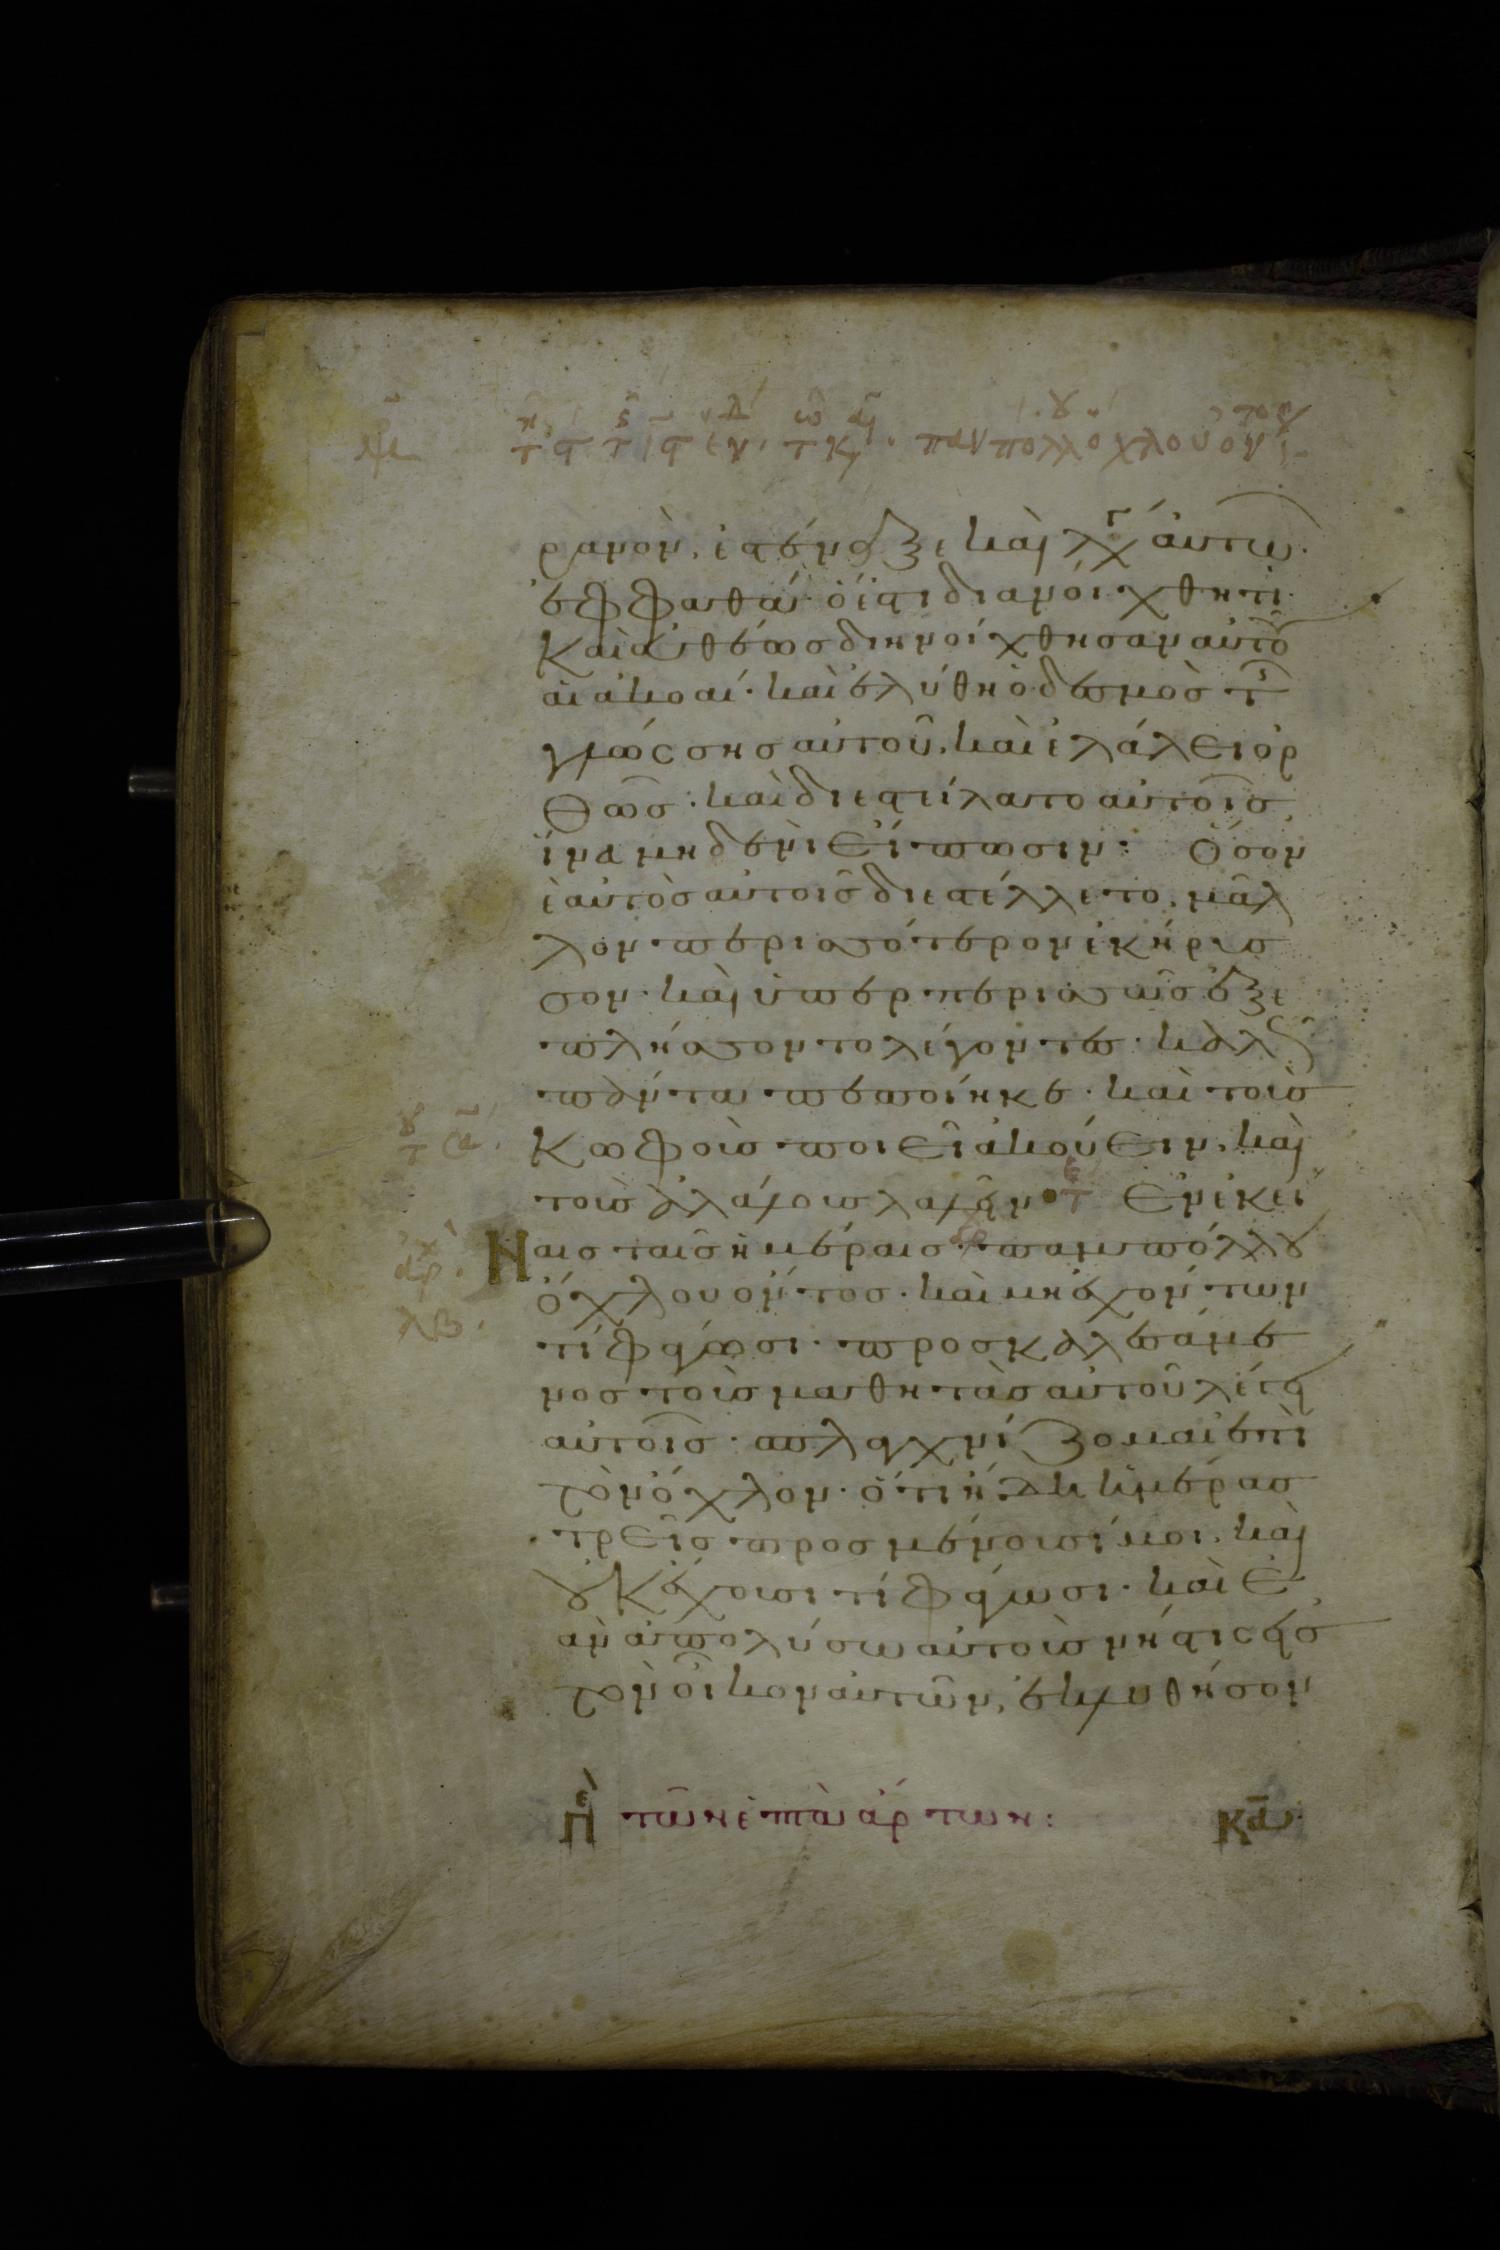 ρανον, ἐστέναξε καὶ λέγει αὐτῶ·
ἐφφαθά· ὅ ἐστι διανοίχθητι·
Καὶ εὐθέως διηνοίχθησαν αὐτοῦ
αἱ ἀκοαί· καὶ ἐλύθη ὁ δεσμὸς τῆς
γλώσσης αὐτοῦ, καὶ ἐλάλει ὀρ
θῶς: καὶ διεστείλατο αὐτοῖς
ἵνα μηδενὶ εἴπωσιν: Ὅσον
δὲ αὐτὸς αὐτοῖς διεστέλλετο, μᾶλ
λον περισσότερον ἐκήρυσ
σον· καὶ ὑπερπερισσῶς ἐξε
πλήσσοντο λέγοντες· καλῶς
πάντα πεποίηκε· καὶ τοὺς
Κωφοὺς ποιεῖ ἀκούειν, καὶ
τοὺς ἀλάλους λαλεῖν· Ἐν ἐκεί
Ναις ταῖς ἡμέραις· παμπόλλου
ὄχλου ὄντος· καὶ μὴ ἐχόντων
τί φάγωσι· προσκαλεσάμε
νος τοὺς μαθητὰς αὐτοῦ λέγει
αὐτοῖς· σπλαγχνίζομαι ἐπὶ
τὸν ὄχλον· ὅτι ἤδη ἡμέρας
τρεῖς προσμένουσί μοι, καὶ
οὐκ ἔχουσι τί φάγωσι· καὶ ἐ
ὰν ἀπολύσω αὐτοὺς νήστεις εἰς
τὸν οἶκον αὐτῶν, ἐκλυθήσον
Πε τῶν ἑπτὰ ἄρτων: Κα